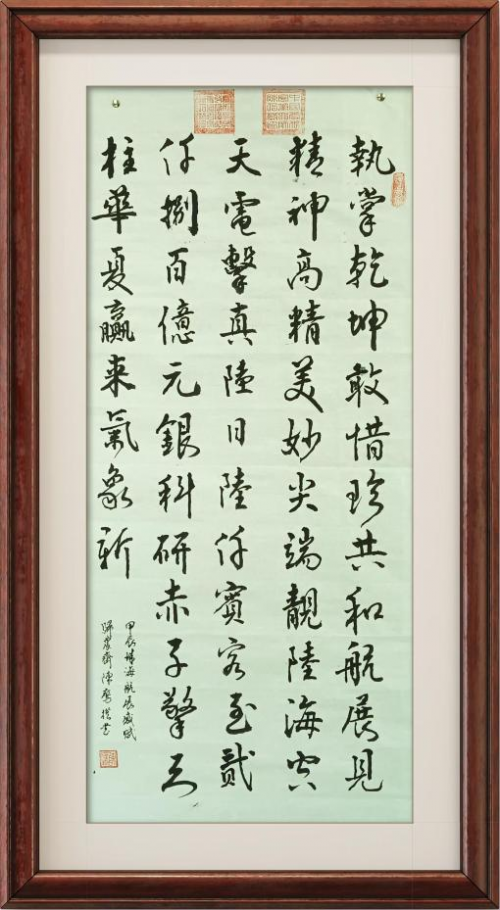 執掌乾坤敢惜珍共和航展見
精神高精美妙尖端靚陸海空
天電擊真陸日陸仟賓客至貳
仟捌百億元銀科研赤子擎天
柱華夏贏来氣象新
甲辰珠海航展感賦